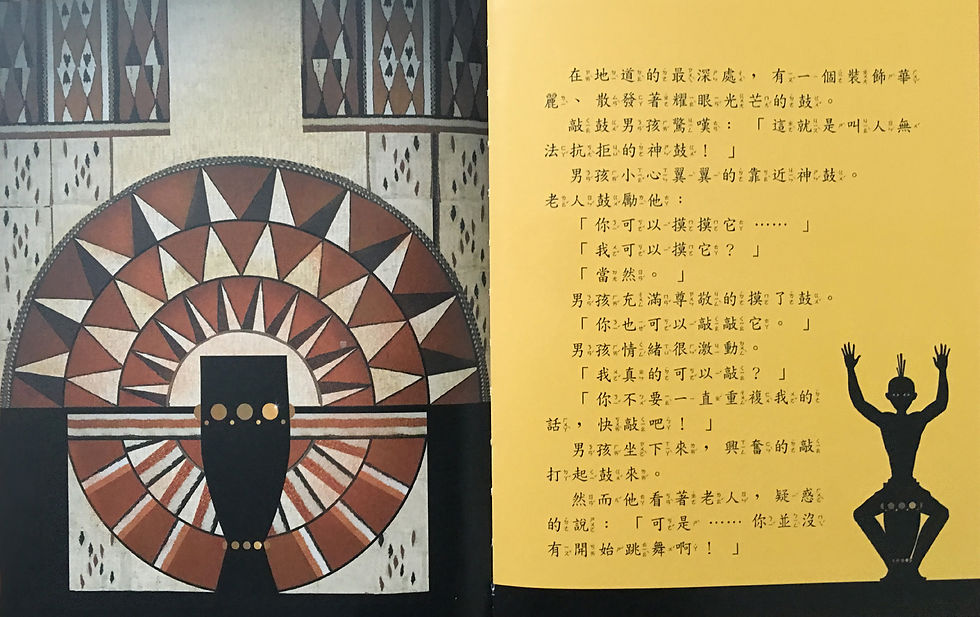 在地道的最深處，有一個裝飾華
麗、散發著耀眼光芒的鼓。
敲鼓男孩驚嘆：「這就是叫人無
法抗拒的神鼓！」
男孩小心翼翼的靠近神鼓。
老人鼓勵他：
「你可以摸摸它……」
「我可以摸它？」
「當然。」
男孩充滿尊敬的摸了鼓。
「你也可以敲敲它。」
男孩情緒很激動。
「我真的可以敲？」
「你不要一直重複我的
話，快敲吧！」
男孩坐下來，興奮的敲
打起鼓來。
然而他看著老人，疑惑
的說：「可是……你並沒
有開始跳舞啊！」